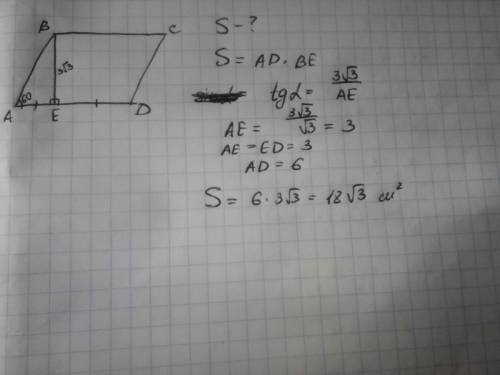 B
C
3√3
60
A
E
D
S - ?
S = AD · BE
tg α = 3√3 / AE
AE = 3√3 / √3 = 3
AE = ED = 3
AD = 6
S = 6 · 3√3 = 18√3 см²